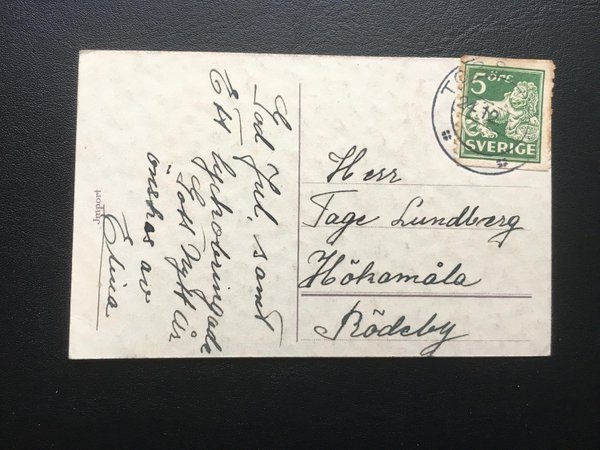 God Jul, samt
Ett lyckobringade
Gott Nytt År
önskas av
Elina
Jmport
5 öre
SVERIGE
Herr
Tage Lundberg
Hökamåla
Rödeby